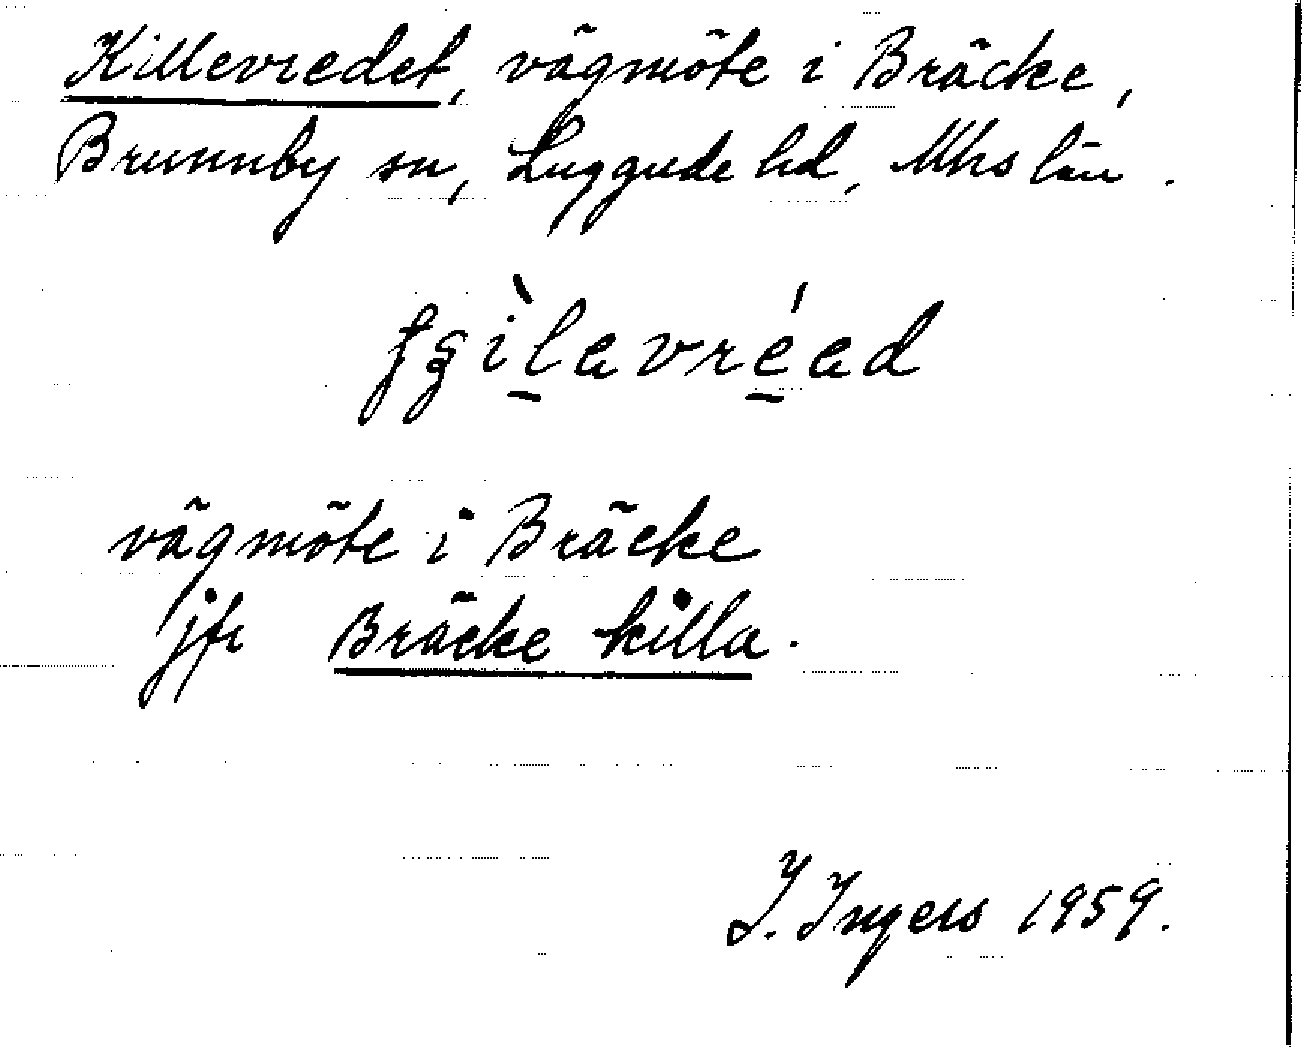 Killevredet, vägmöte i Bräcke,
Brunnby sn, Luggude hd, Mhs län.
vägmöte i Bräcke
jfr Bräcke killa.
I. Ingers 1959.